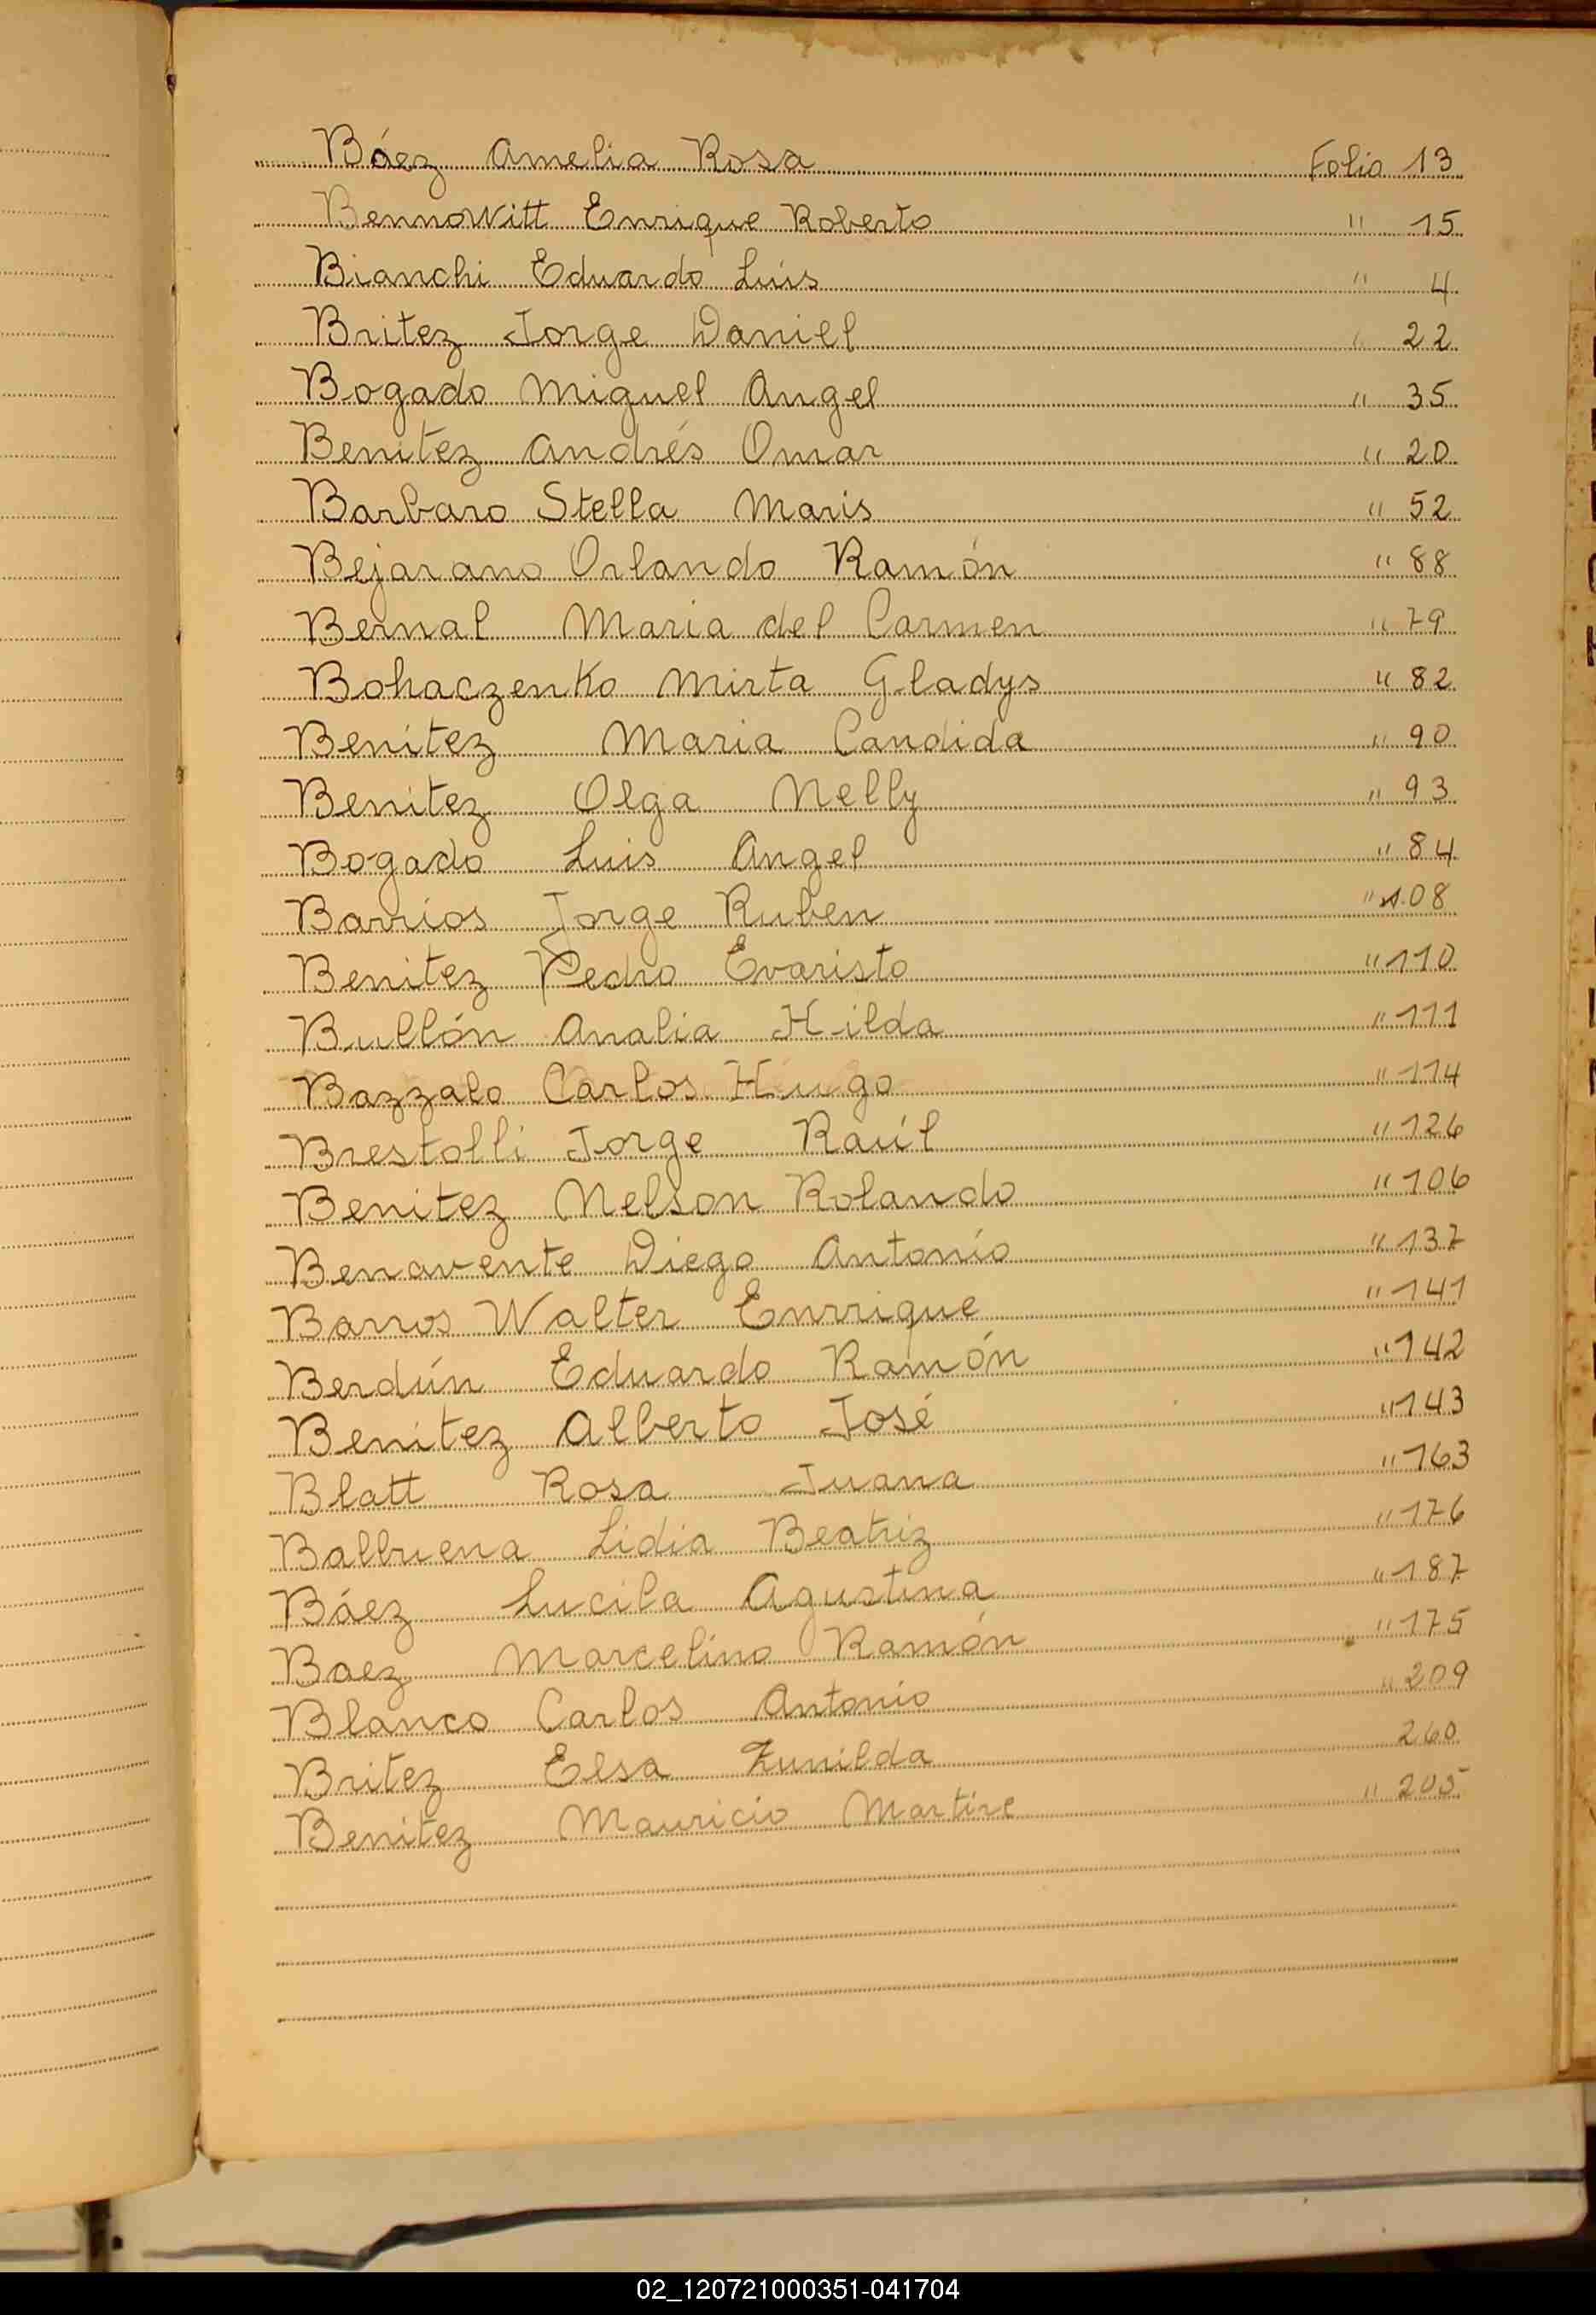 Báez Amelia Rosa Folio 13
Bennowitt Enrique Roberto " 15
Bianchi Eduardo Luís " 4
Britez Jorge Daniel " 22
Bogado Miguel Angel " 35
Benitez Andrés Omar " 20
Barbaro Stella Maris " 52
Bejarano Orlando Ramón " 88
Bernal Maria del Carmen " 79
Bohaczenko Mirta Gladys " 82
Benítez Maria Candida " 90
Benitez Olga Nelly " 93
Bogado Luis Angel " 84
Barrios Jorge Ruben " 108
Benitez Pedro Evaristo " 110
Bullón Analia Hilda " 111
Bazzalo Carlos Hugo " 114
Brestolli Jorge Raúl " 126
Benitez Nelson Rolando " 106
Benavente Diego Antonio " 137
Barros Walter Enrrique " 141
Berdún Eduardo Ramón " 142
Benitez Alberto José " 143
Blatt Rosa Juana " 163
Balbuena Lidia Beatriz " 176
Báez Lucila Agustina " 187
Baez Marcelino Ramón " 175
Blanco Carlos Antonio " 209
Britez Elsa Zunilda 260
Benítez Mauricio Martire " 205
02_120721000351-041704